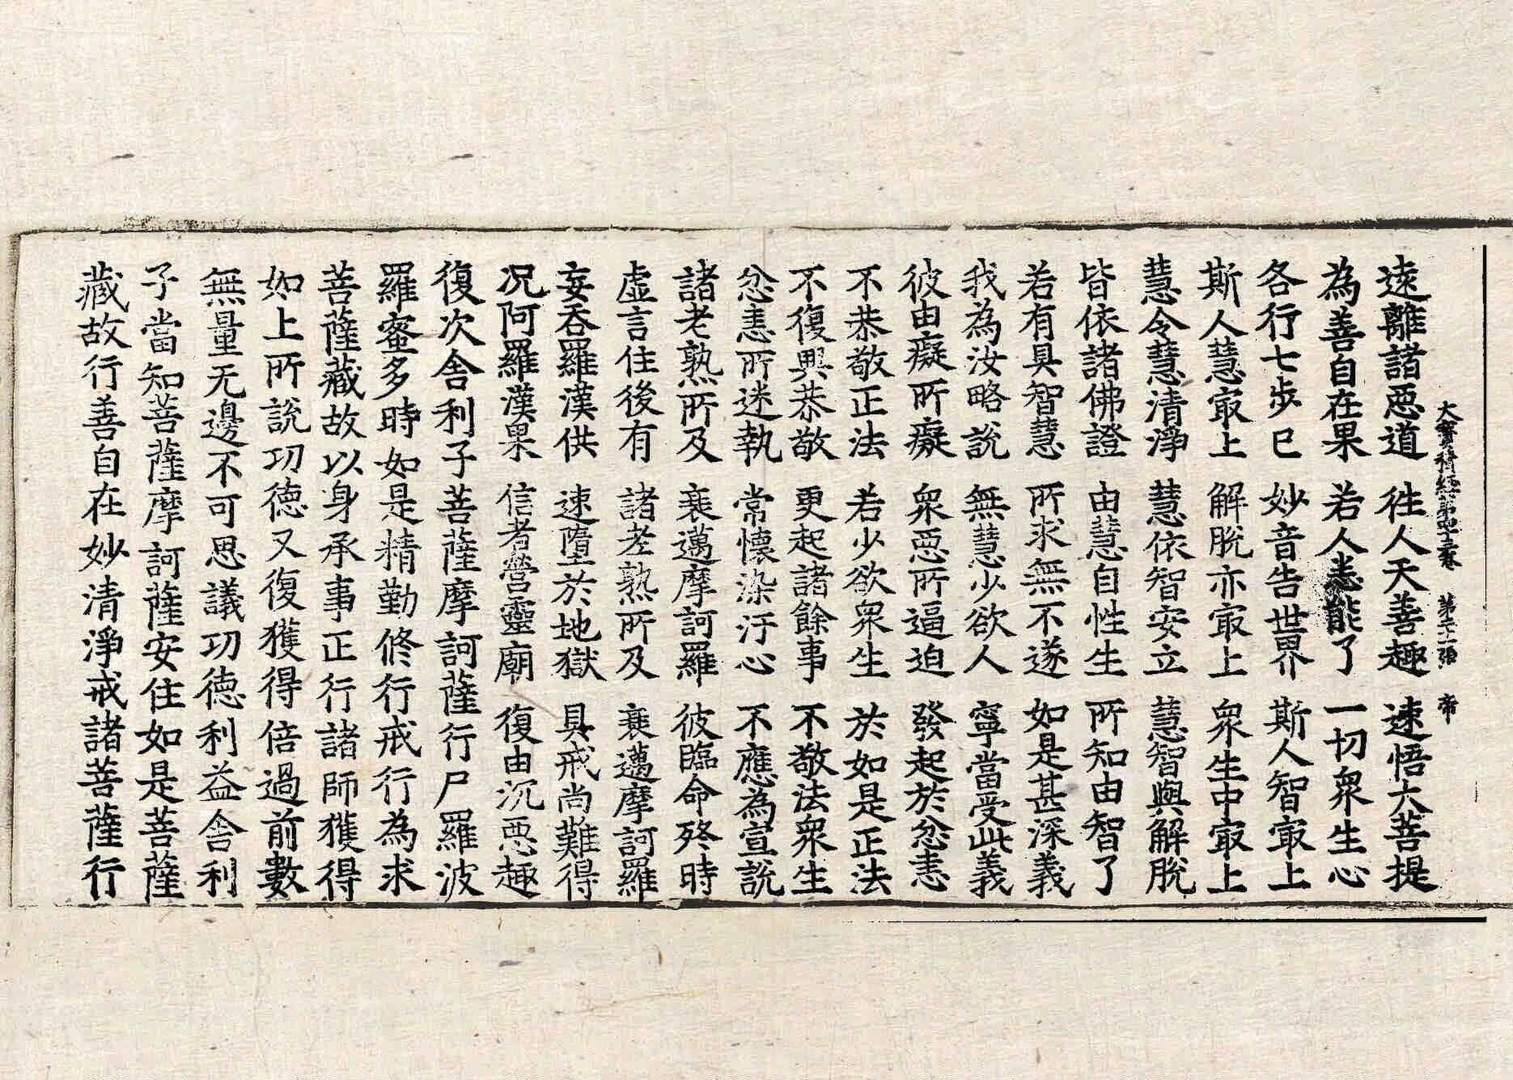 大寶積經第四十三卷 第二十張 帝
遠離諸惡道 往人天善趣 速悟大菩提
為善自在果 若人悉能了 一切衆生心
各行七步已 妙音告世界 斯人智㝡上
斯人慧㝡上 解脫亦㝡上 衆生中㝡上
慧令慧清淨 慧依智安立 慧智與解脫
皆依諸佛證 由慧自性生 所知由智了
若有具智慧 所求無不遂 如是甚深義
我為汝略說 無慧少欲人 寧當受此義
彼由癡所癡 衆惡所逼迫 發起於忿恚
不恭敬正法 若少欲衆生 於如是正法
不復興恭敬 更起諸餘事 不敬法衆生
忿恚所迷執 常懷染汙心 不應為宣說
諸老熟所及 衰邁摩訶羅 彼臨命終時
虛言住後有 諸老熟所及 衰邁摩訶羅
妄吞羅漢供 速墮於地獄 具戒尚難得
况阿羅漢果 信者營靈廟 復由沉惡趣
復次舍利子菩薩摩訶薩行尸羅波
羅蜜多時如是精勤修行戒行為求
菩薩藏故以身承事正行諸師獲得
如上所說功德又復獲得倍過前數
無量无邊不可思議功德利益舍利
子當知菩薩摩訶薩安住如是菩薩
藏故行善自在妙清淨戒諸菩薩行